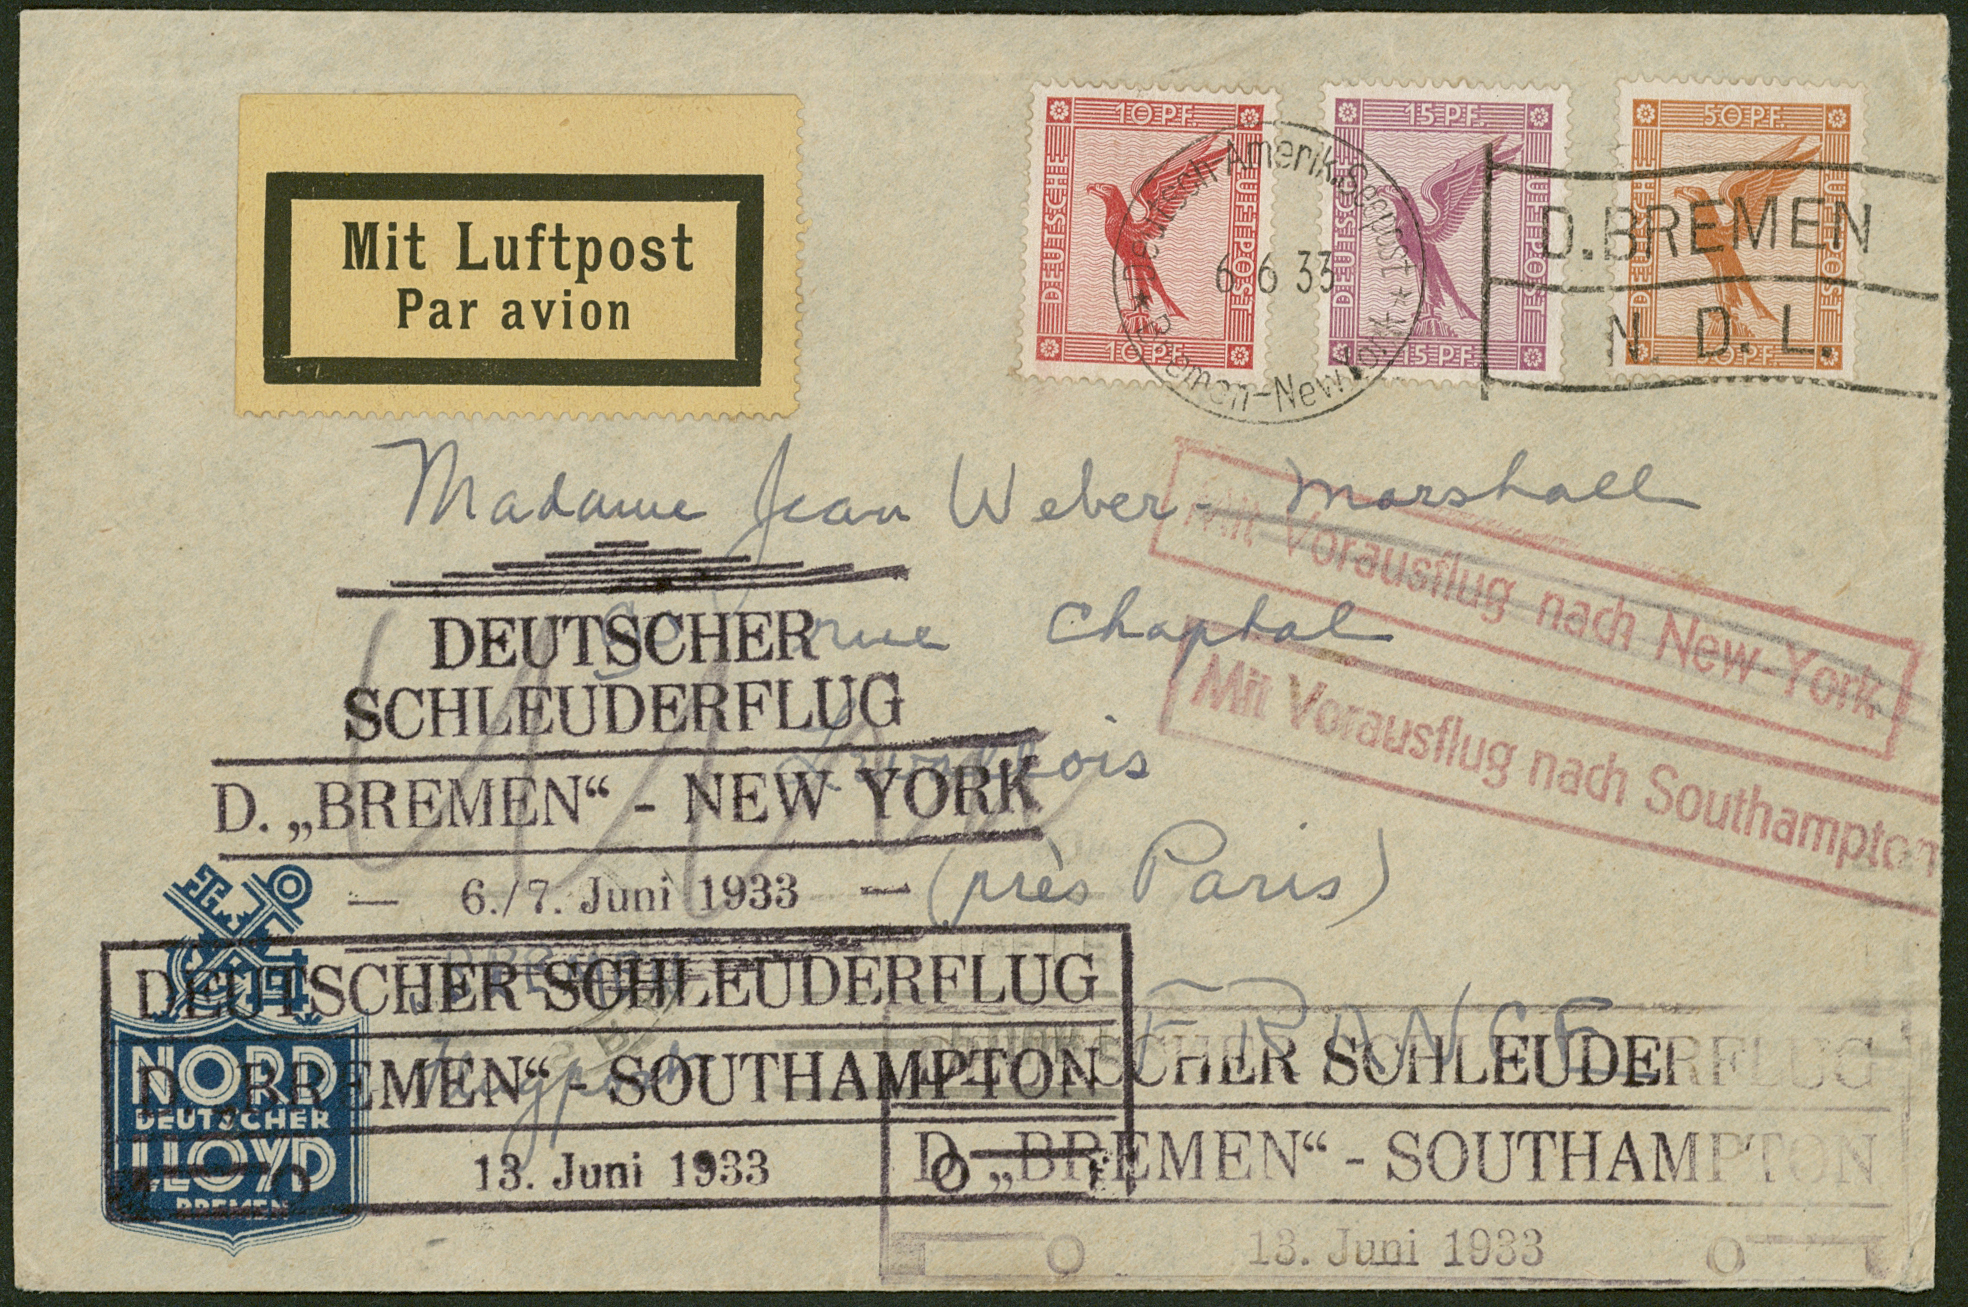 Mit Luftpost
Par avion
10 PF.
DEUTSCHE
LUFTPOST
10 PF.
15 PF.
DEUTSCHE
LUFTPOST
15 PF.
50 PF.
DEUTSCHE
LUFTPOST
50 PF.
Deutsch-Amerik. Seepost
6 6 33
Bremen-New York
D. BREMEN
N. D. L.
Madame Jean Weber-Marshall
rue Chaptal
(près Paris)
FRANCE
Mit Vorausflug nach New-York
Mit Vorausflug nach Southampton
DEUTSCHER
SCHLEUDERFLUG
D. „BREMEN“ - NEW YORK
— 6./7. Juni 1933 —
DEUTSCHER SCHLEUDERFLUG
D. „BREMEN“ - SOUTHAMPTON
13. Juni 1933
NORD
DEUTSCHER
LLOYD
BREMEN
DEUTSCHER SCHLEUDERFLUG
D. „BREMEN“ - SOUTHAMPTON
13. Juni 1933